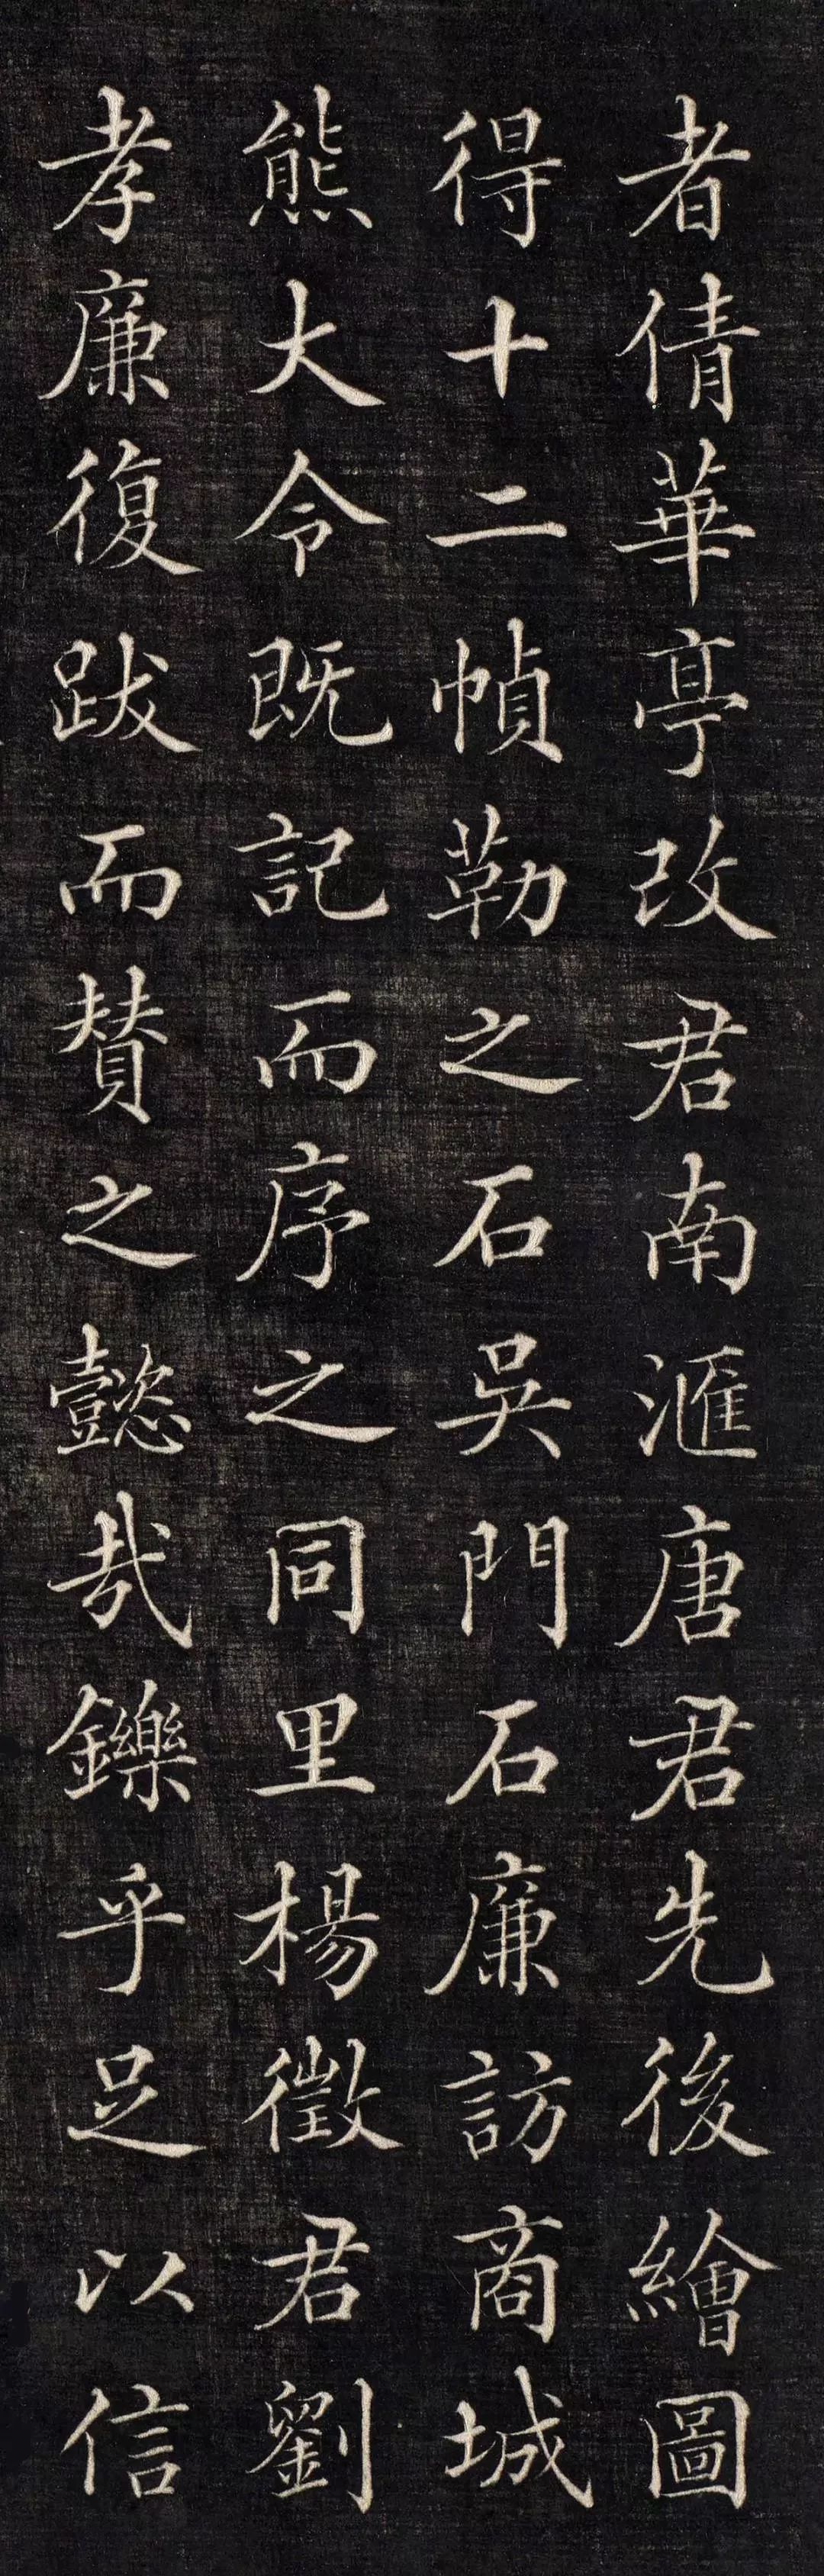 者倩華亭改君南滙唐君先後繪圖
得十二幀勒之石吳門石廉訪商城
熊大令既記而序之同里楊徵君劉
孝廉復跋而贊之懿哉鑠乎足以信